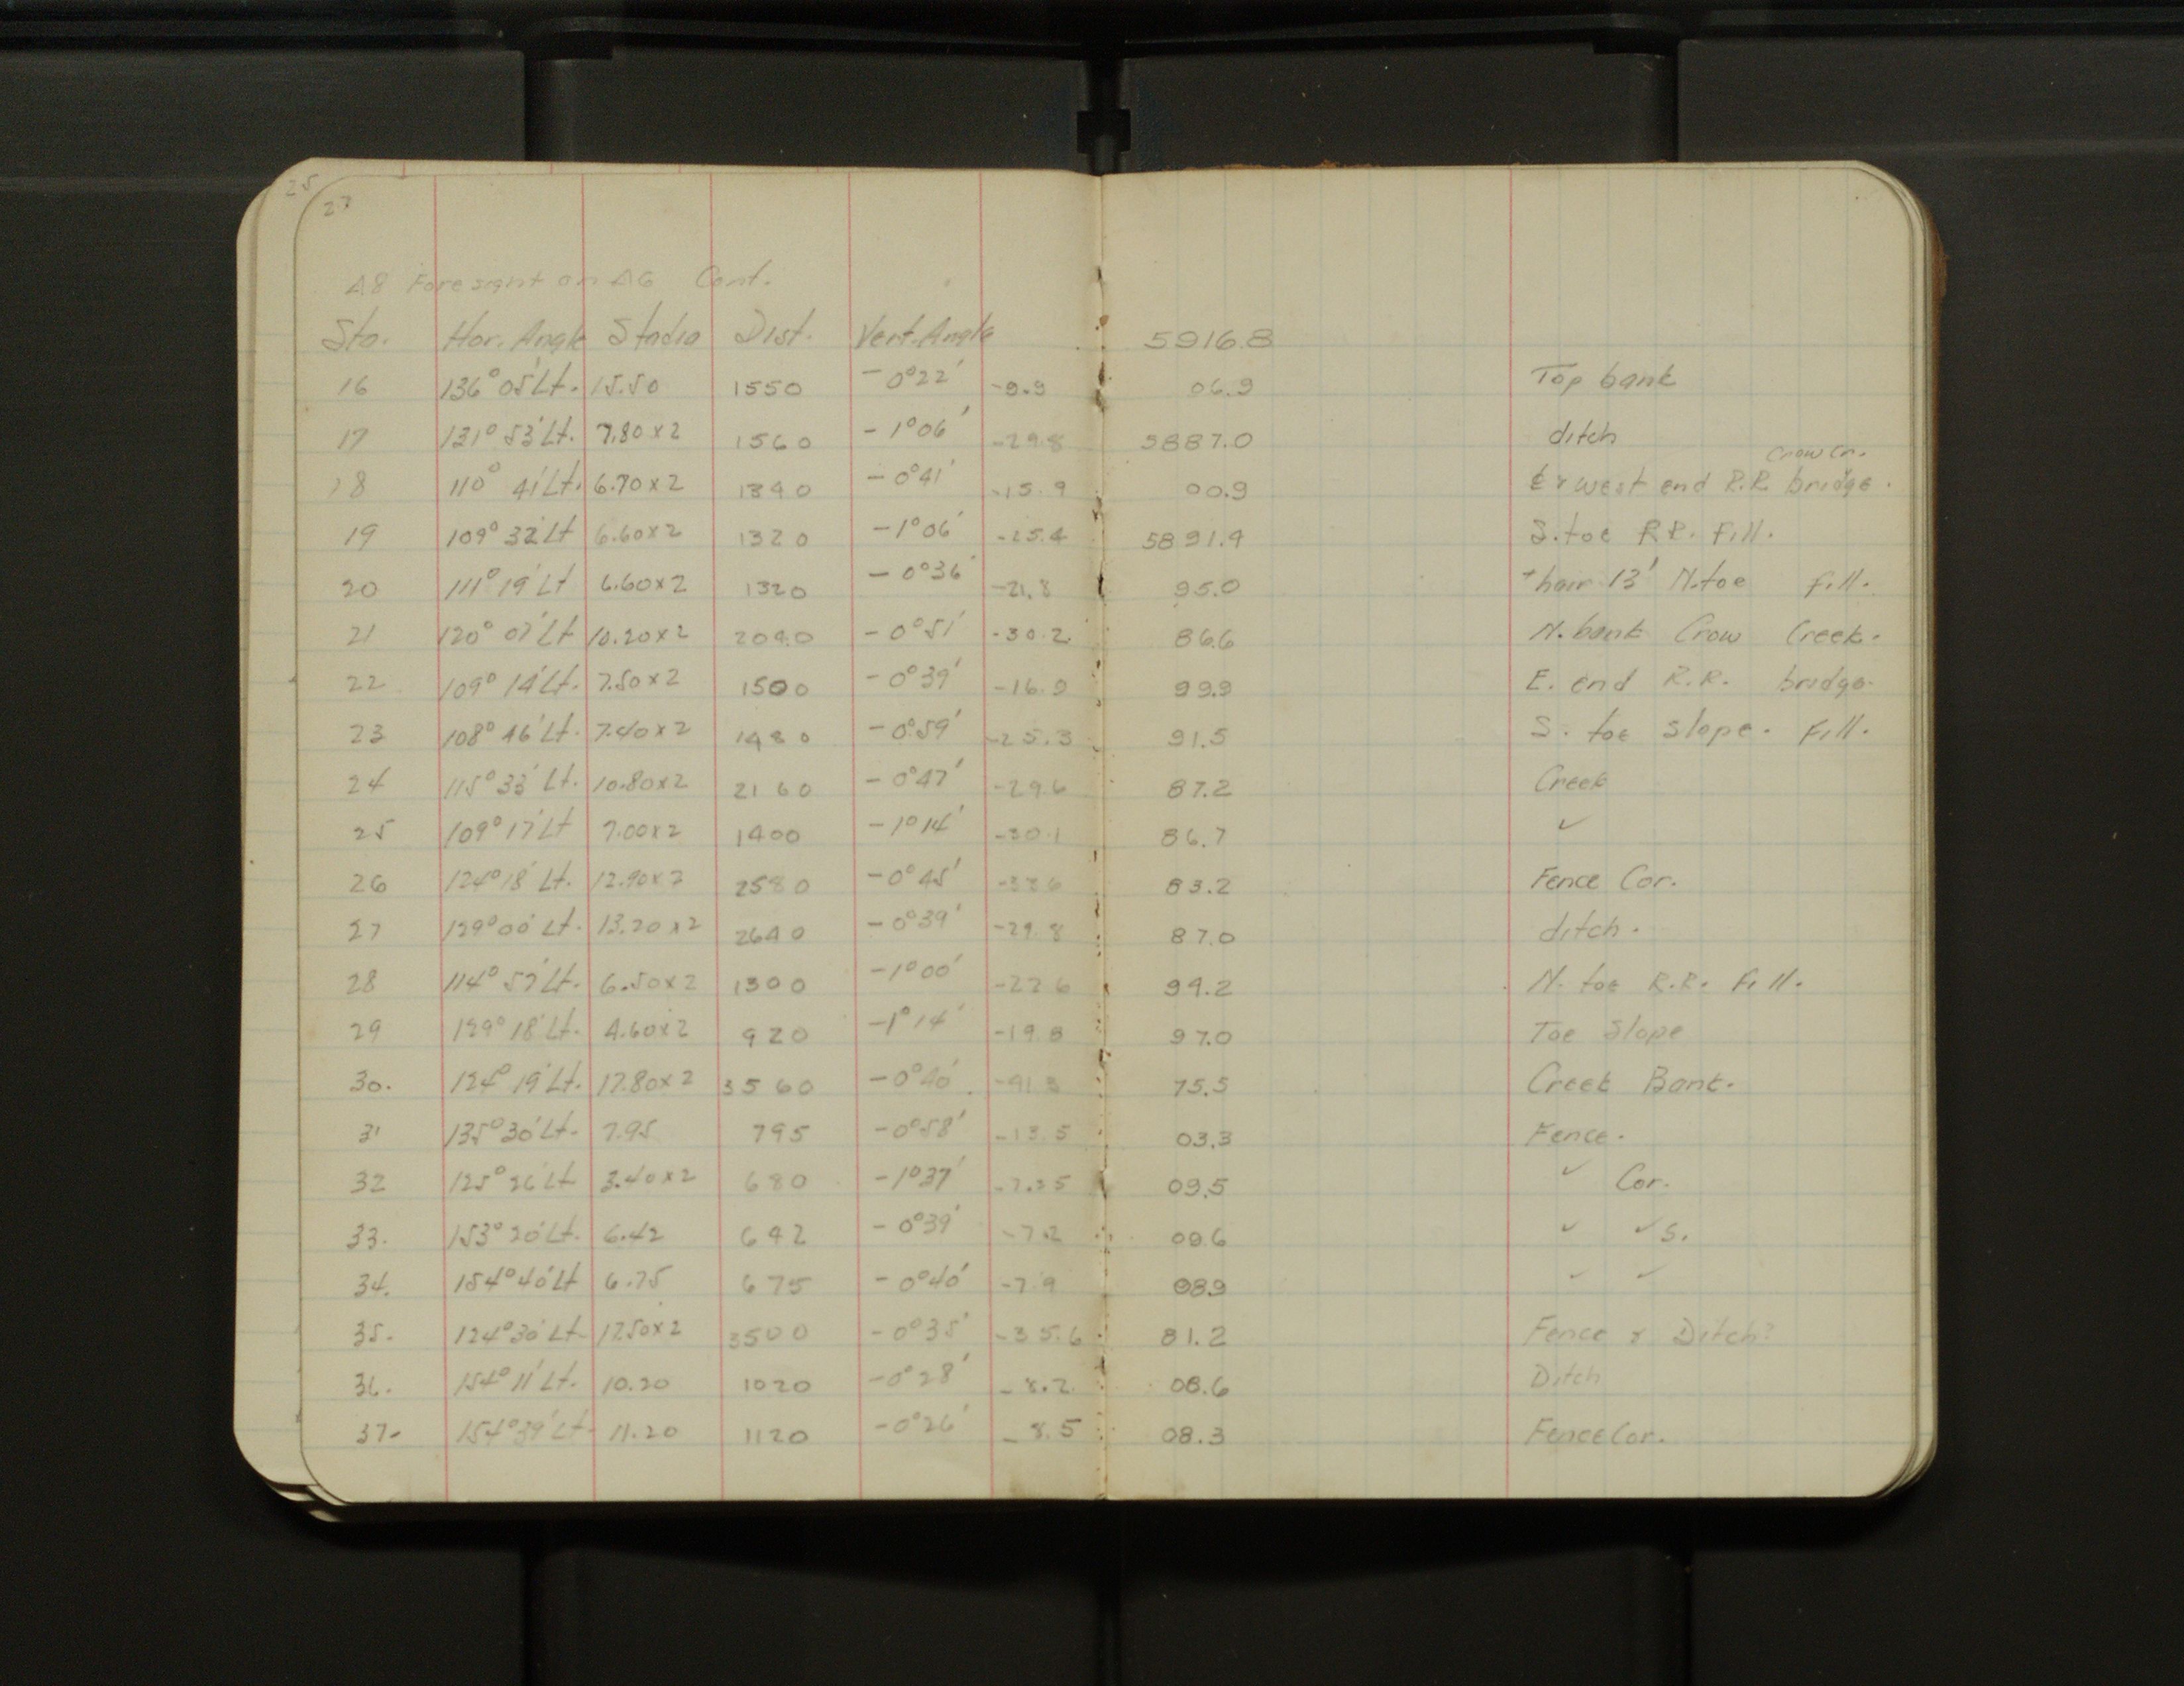 25
27
Δ8 Foresight on Δ6 Cont.
Sta. Hor. Angle Stadia Dist. Vert. Angle 5916.8
16 136°05' Lt. 15.50 1550 -0°22' -9.9 06.9 Top bank
17 131°53' Lt. 7.80x2 1560 -1°06' -29.8 5887.0 ditch
Crow Cr.
18 110°41' Lt. 6.70x2 1340 -0°41' -15.9 00.9 west end R.R. bridge.
19 109°32' Lt 6.60x2 1320 -1°06' -25.4 5891.4 S. toe R.R. Fill.
20 111°19' Lt 6.60x2 1320 -0°36' -21.8 95.0 + hair 13' N. toe fill.
21 120°07' Lt 10.20x2 2040 -0°51' -30.2 86.6 N. bank Crow Creek.
22 109°14' Lt. 7.50x2 1500 -0°39' -16.9 99.9 E. end R.R. bridge.
23 108°46' Lt. 7.40x2 1480 -0°59' -25.3 91.5 S. toe slope. Fill.
24 115°33' Lt. 10.80x2 2160 -0°47' -29.6 87.2 Creek
25 109°17' Lt 7.00x2 1400 -1°14' -30.1 86.7 ✓
26 124°18' Lt. 12.90x2 2580 -0°45' -33.6 83.2 Fence Cor.
27 129°00' Lt. 13.20x2 2640 -0°39' -29.8 87.0 ditch.
28 114°57' Lt. 6.50x2 1300 -1°00' -22.6 94.2 N. toe R.R. Fill.
29 129°18' Lt. 4.60x2 920 -1°14' -19.8 97.0 Toe Slope
30. 124°19' Lt. 17.80x2 3560 -0°40' -41.3 75.5 Creek Bank.
31 135°30' Lt. 7.95 795 -0°58' -13.5 03.3 Fence.
32 125°26' Lt 3.40x2 680 -1°37' 09.5 ✓ Cor.
33. 153°20' Lt. 6.42 642 -0°39' -7.2 09.6 ✓ ✓ S.
34. 154°40' Lt 6.75 675 -0°40' -7.9 08.9 ✓ ✓
35. 124°30' Lt 17.50x2 3500 -0°35' -35.6 81.2 Fence & Ditch?
36. 154°11' Lt. 10.20 1020 -0°28' -8.2 08.6 Ditch
37. 154°39' Lt. 11.20 1120 -0°26' -8.5 08.3 Fence Cor.